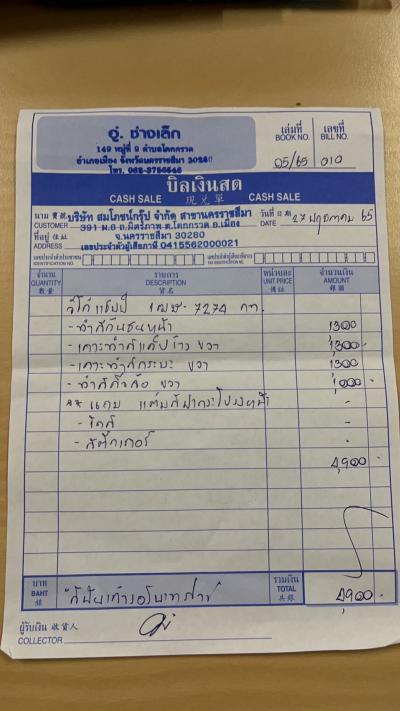 อู่. ช่างเล็ก
149 หมู่ที่ 9 ตำบลโคกกรวด
อำเภอเมือง จังหวัดนครราชสีมา 30280
โทร.
เล่มที่ เลขที่
BOOK NO. BILL NO.
05/65 010
บิลเงินสด
CASH SALE 現兌單 CASH SALE
นาม บริษัท สมโภชน์กรุ๊ป จำกัด สาขานครราชสีมา วันที่ 27 พฤษภาคม 65
CUSTOMER 391 ม.6 ถ.มิตรภาพ ต.โคกกรวด อ.เมือง DATE
ที่อยู่ จ.นครราชสีมา 30280
ADDRESS เลขประจำตัวผู้เสียภาษี 0415562000021
IDENTIFICATION NO.
จำนวน รายการ หน่วยละ จำนวนเงิน
QUANTITY DESCRIPTION UNIT PRICE AMOUNT
數量 貨名 價銀
7274 กท.
- ทำสีกันชนหน้า 1,300
- เคาะทำสีแค็ปข้าง ขวา 1,300.-
- เคาะทำสีกระบะ ขวา 1,300
- ทำสี ขวา 1,000.-
** แถม แต้มสีฝากระโปรงหน้า -
- -
- สติ๊กเกอร์ -
4,900
บาท รวมเงิน
BAHT TOTAL 4,900.-
銖 共銀
"สี่พันเก้าร้อยบาทถ้วน"
ผู้รับเงิน 收貨人
COLLECTOR